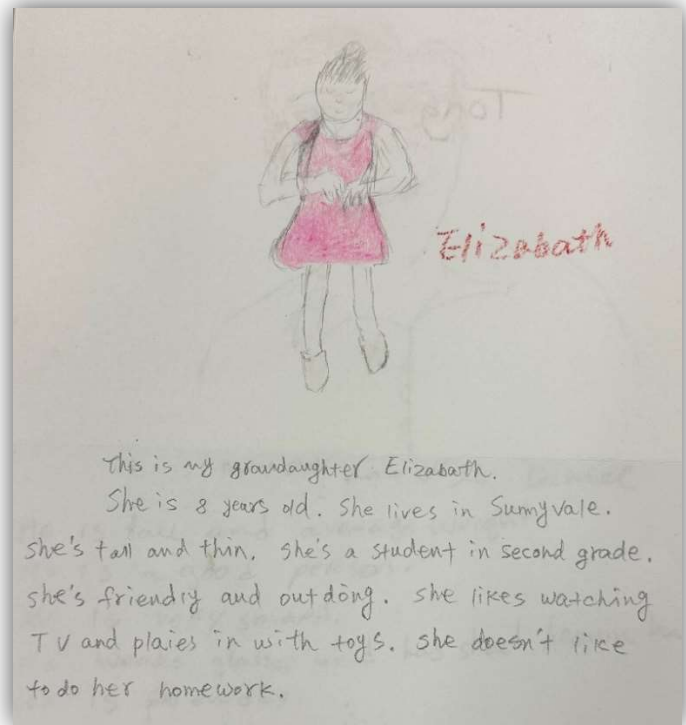 Tong
Elizabath
This is my groundaughter Elizabath.
She is 8 years old. She lives in Sunnyvale.
she's tall and thin. she's a student in second grade.
she's friendly and outdoing. she likes watching
TV and plaies in with toys. she doesn't like
to do her homework.